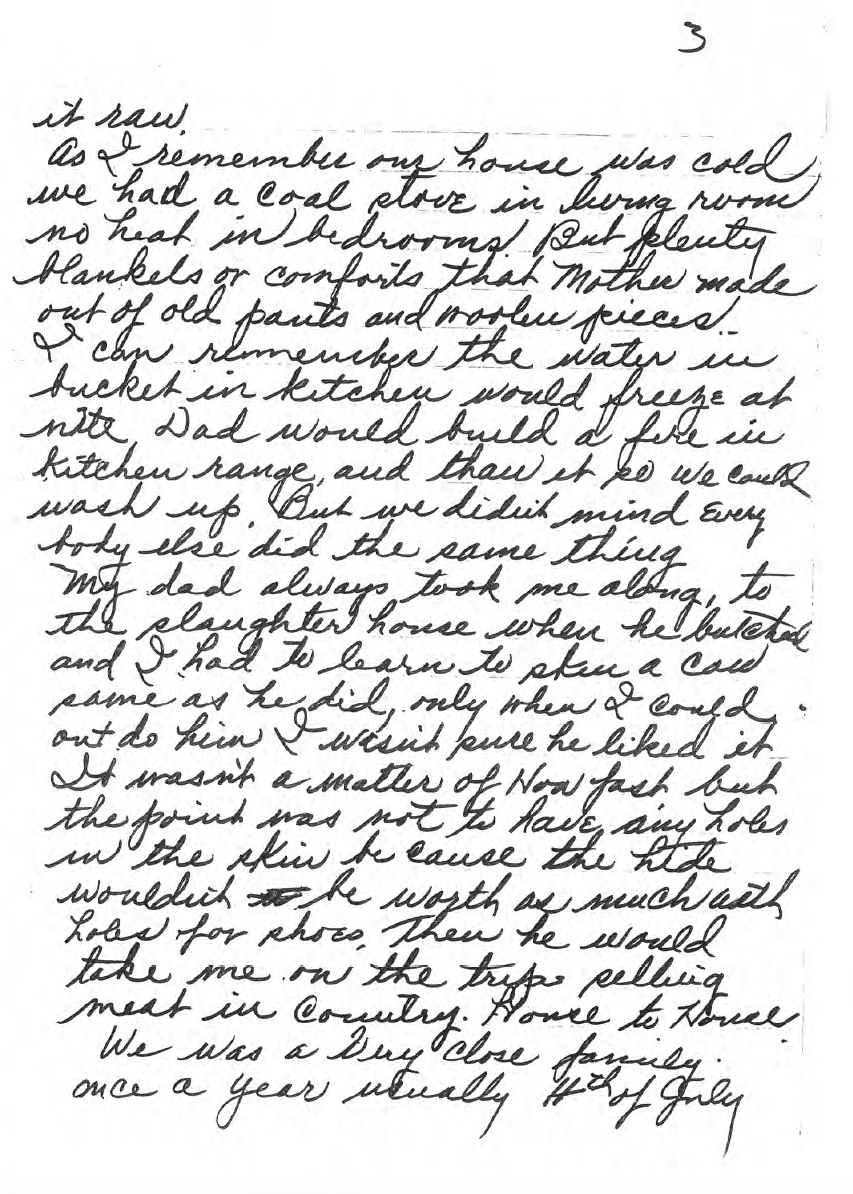 3
it raw.
As I remember our house was cold
we had a coal stove in living room
no heat in bedrooms. But plenty
blankets or comforts that Mother made
out of old pants and woolen pieces.
I can remember the water in
bucket in kitchen would freeze at
nite, Dad would build a fire in
kitchen range, and thaw it so we could
wash up. But we didn't mind Every
body else did the same thing
My dad always took me along, to
the slaughter house when he butched
and I had to learn to skin a cow
same as he did, only when I could
out do him I wasn't sure he liked it
It wasn't a matter of How fast but
the point was not to have any holes
in the skin be cause the hide
wouldn't be worth as much with
holes for shoes. Then he would
take me on the trips selling
meat in Country. House to House.
We was a Very close family.
once a year usually 4th of July